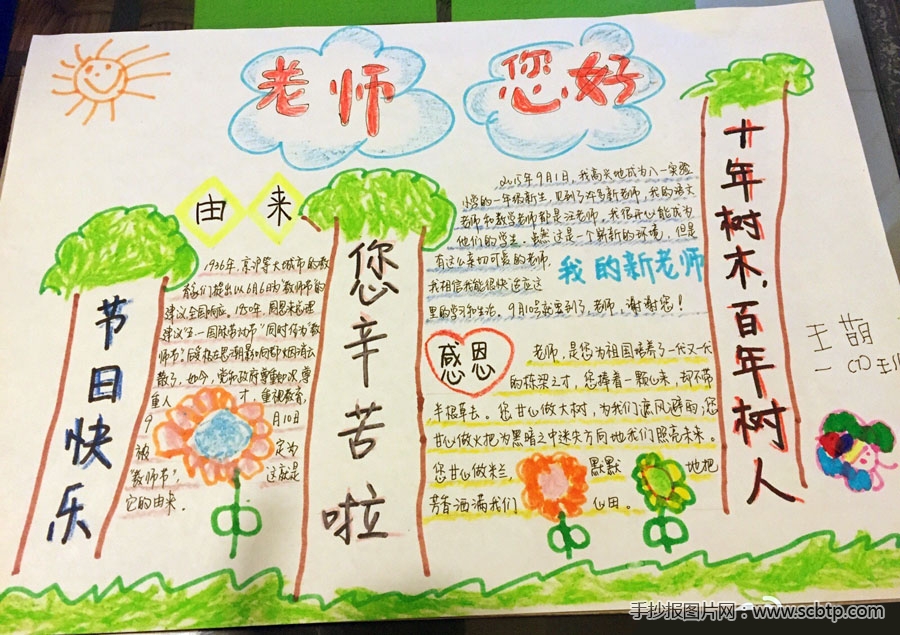 老师 您好
由来
1936年,京沪等大城市的教
师们提出以6月6日为"教师节的
建议全国响应。
建议"五一国际劳动节"同时作为"教
师节"
散了。如今,党和政府尊重知识尊
重人才,重视教育,
9月10日
被定为
"教师节",这就是
它的由来。
节日快乐
您辛苦啦
2015年9月1日,我高兴地成为八一实验
小学的一年级新生,见到了许多新老师,我的语文
老师和数学老师都是汪老师,我很开心能成为
他们的学生。虽然这是一个崭新的环境,但是
有这么亲切可爱的老师,
我相信我能很快适应这
里的学习和生活。9月10号就要到了,老师,谢谢您!
我的新老师
感恩
老师,是您为祖国培养了一代又一代
的栋梁之才,您捧着一颗心来,却不带
半根草去。您甘心做大树,为我们遮风避雨;您
甘心做火把为黑暗之中迷失方向地我们照亮未来。
您甘心做米兰,默默地把
芳香洒满我们心田。
十年树木,百年树人
王萌
手抄报图片网:www.scbtp.com